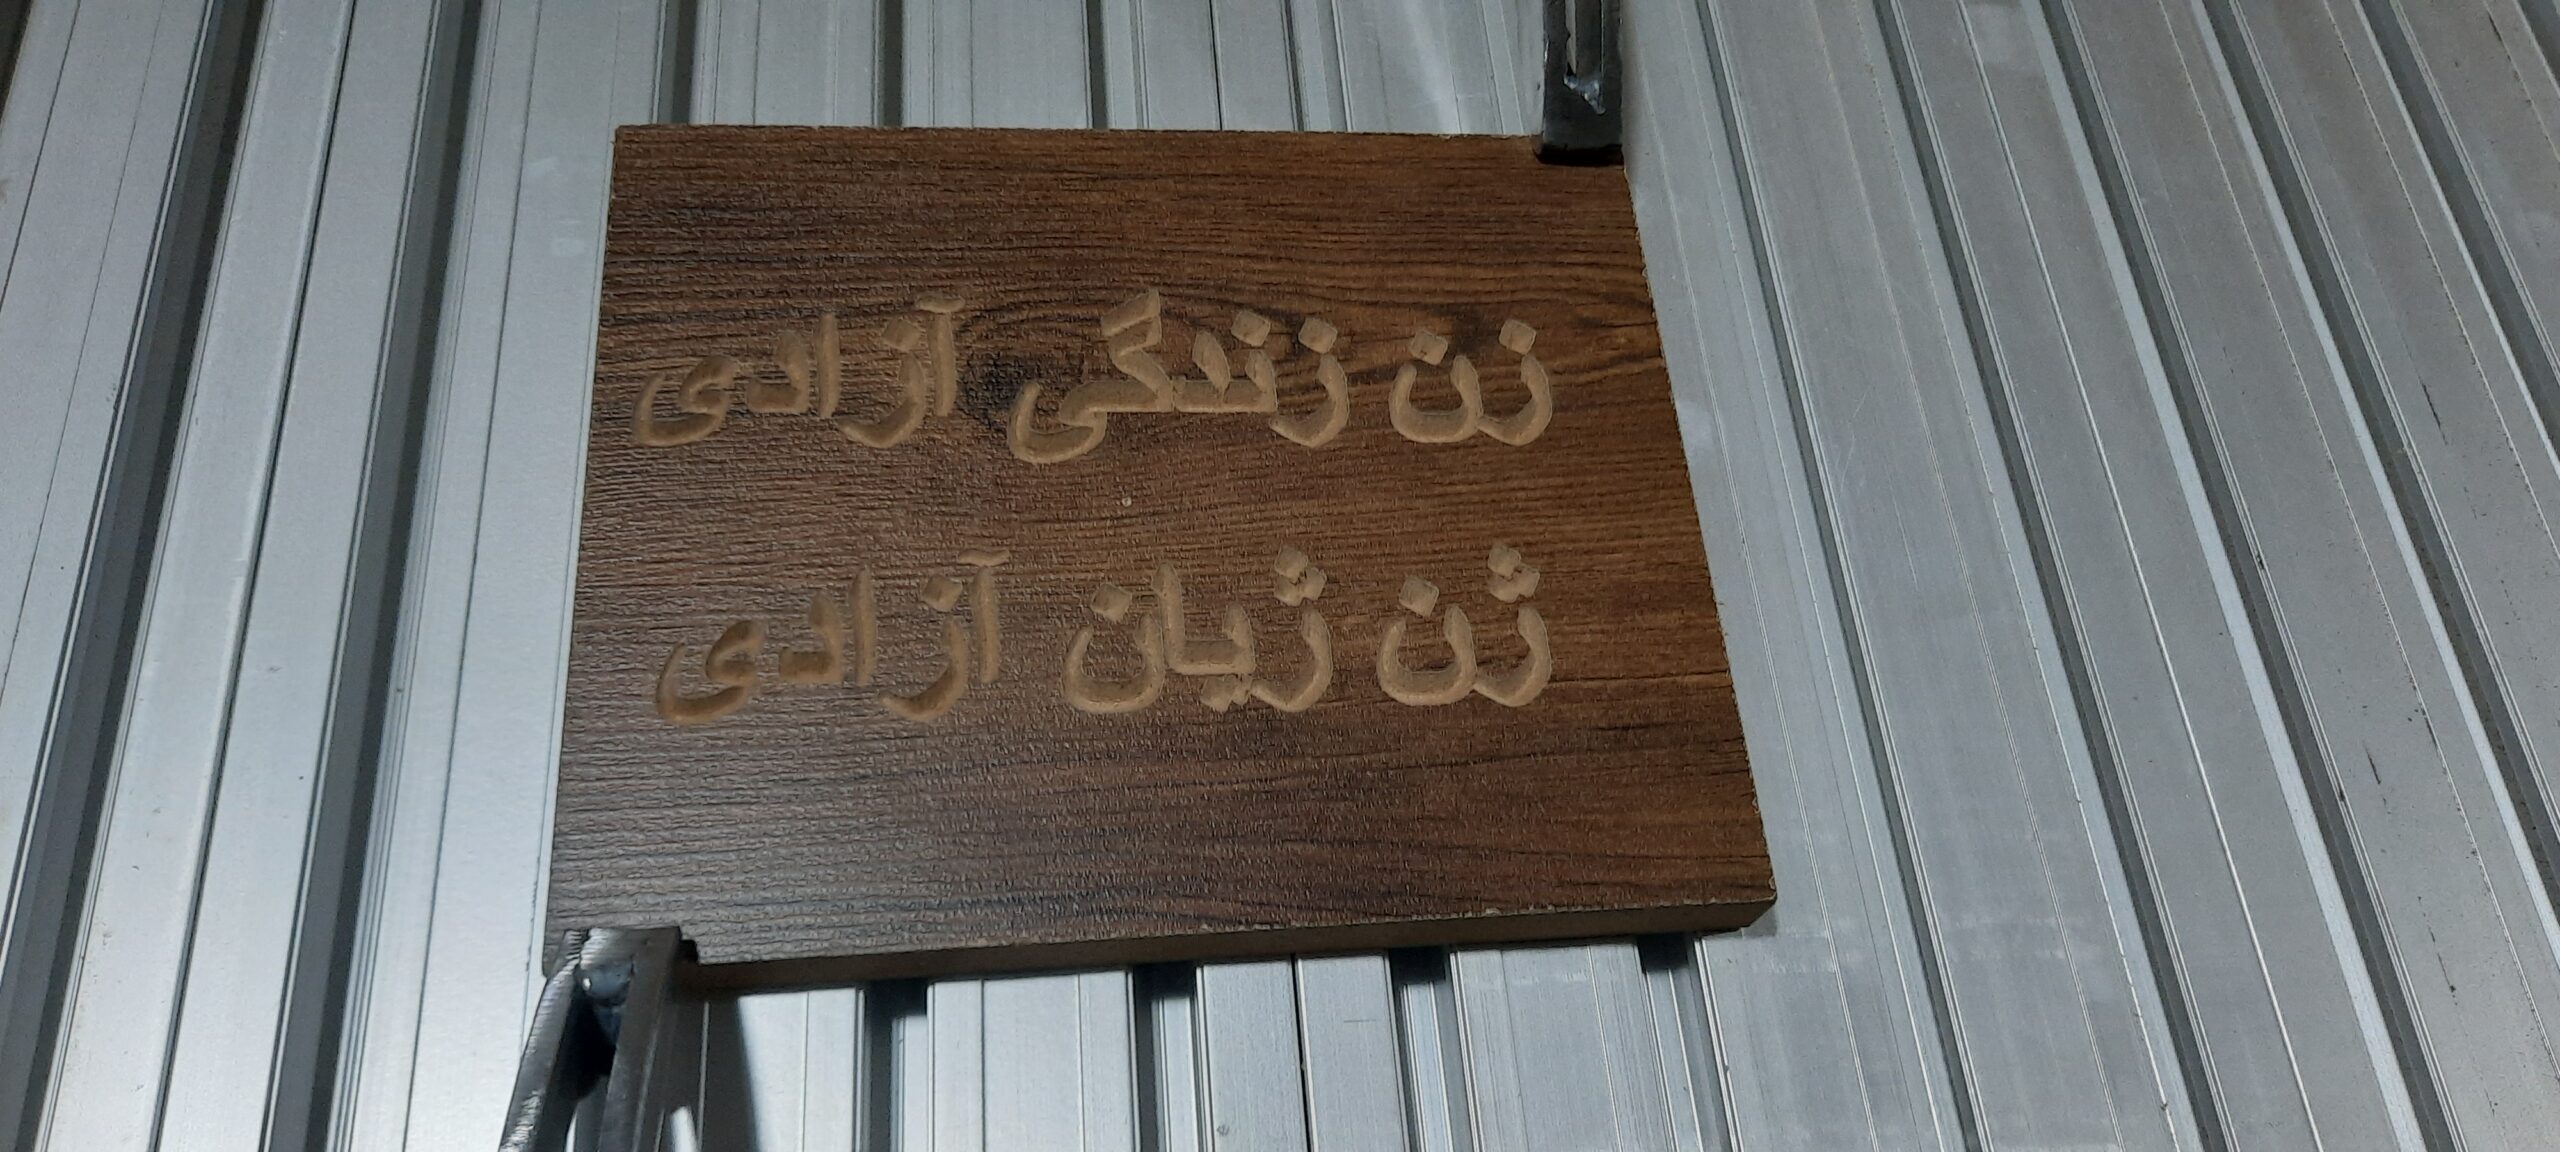 زن زندگی آزادی
ژن ژیان آزادی